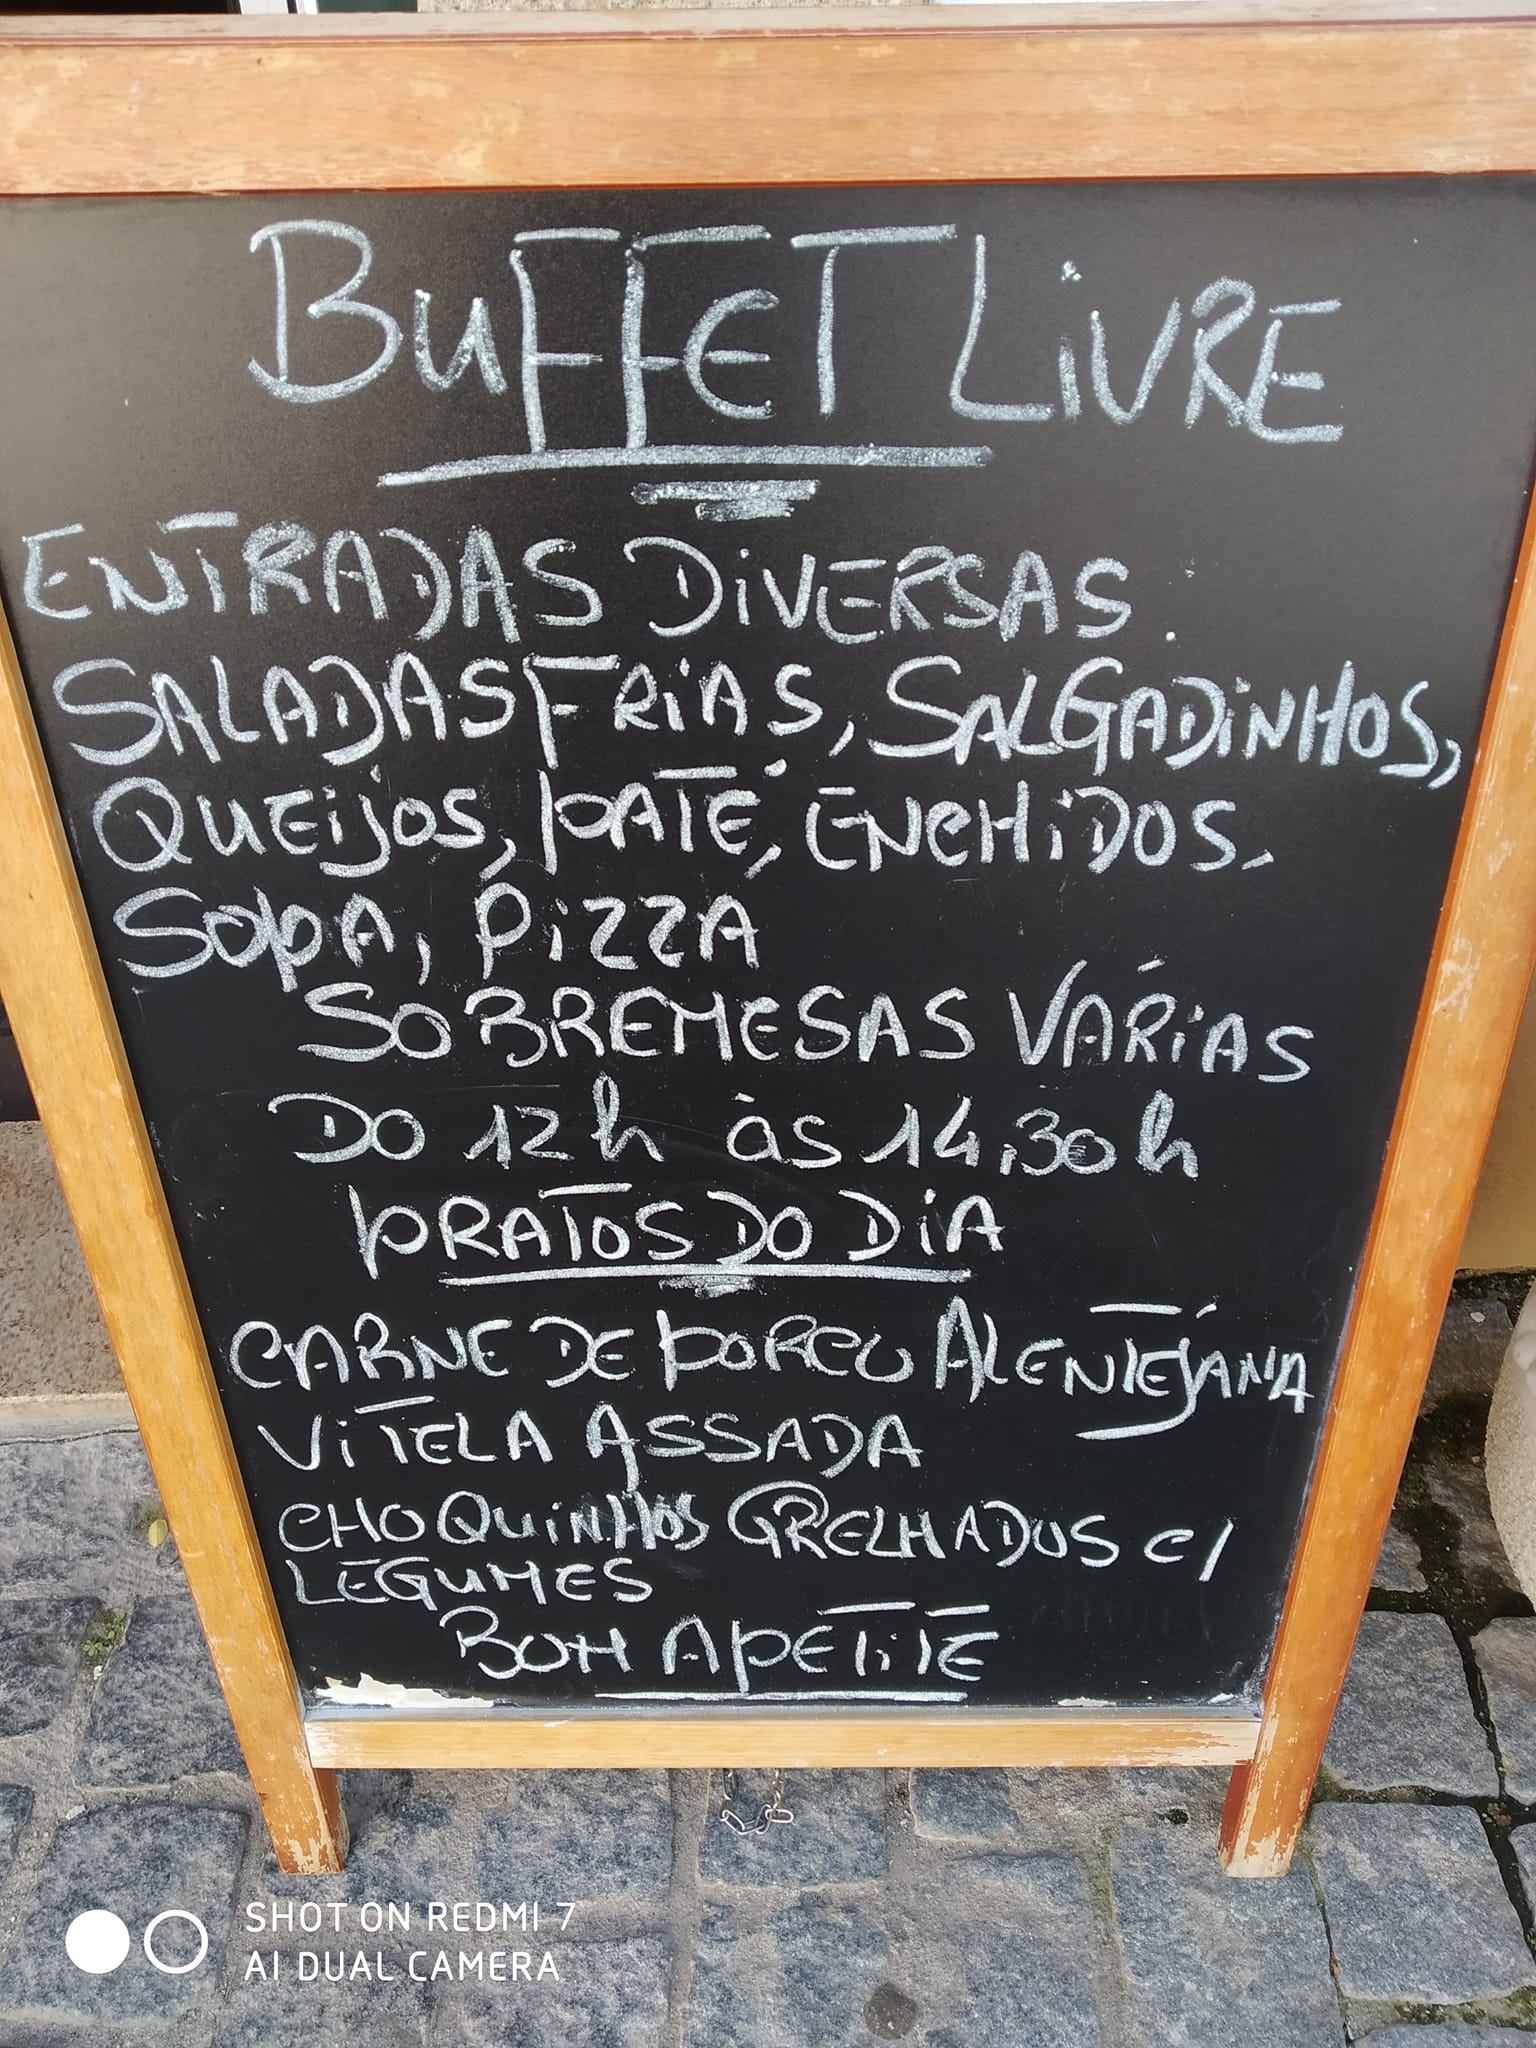 BUFFET LIVRE
ENTRADAS DIVERSAS:
SALADAS FRIAS, SALGADINHOS,
QUEIJOS, PATÉ, ENCHIDOS,
SOPA, PIZZA
SOBREMESAS VÁRIAS
DO 12h às 14,30h
PRATOS DO DIA
CARNE DE PORCO ALENTEJANA
VITELA ASSADA
CHOQUINHOS GRELHADOS C/
LEGUMES
BOM APETITE
SHOT ON REDMI 7
AI DUAL CAMERA